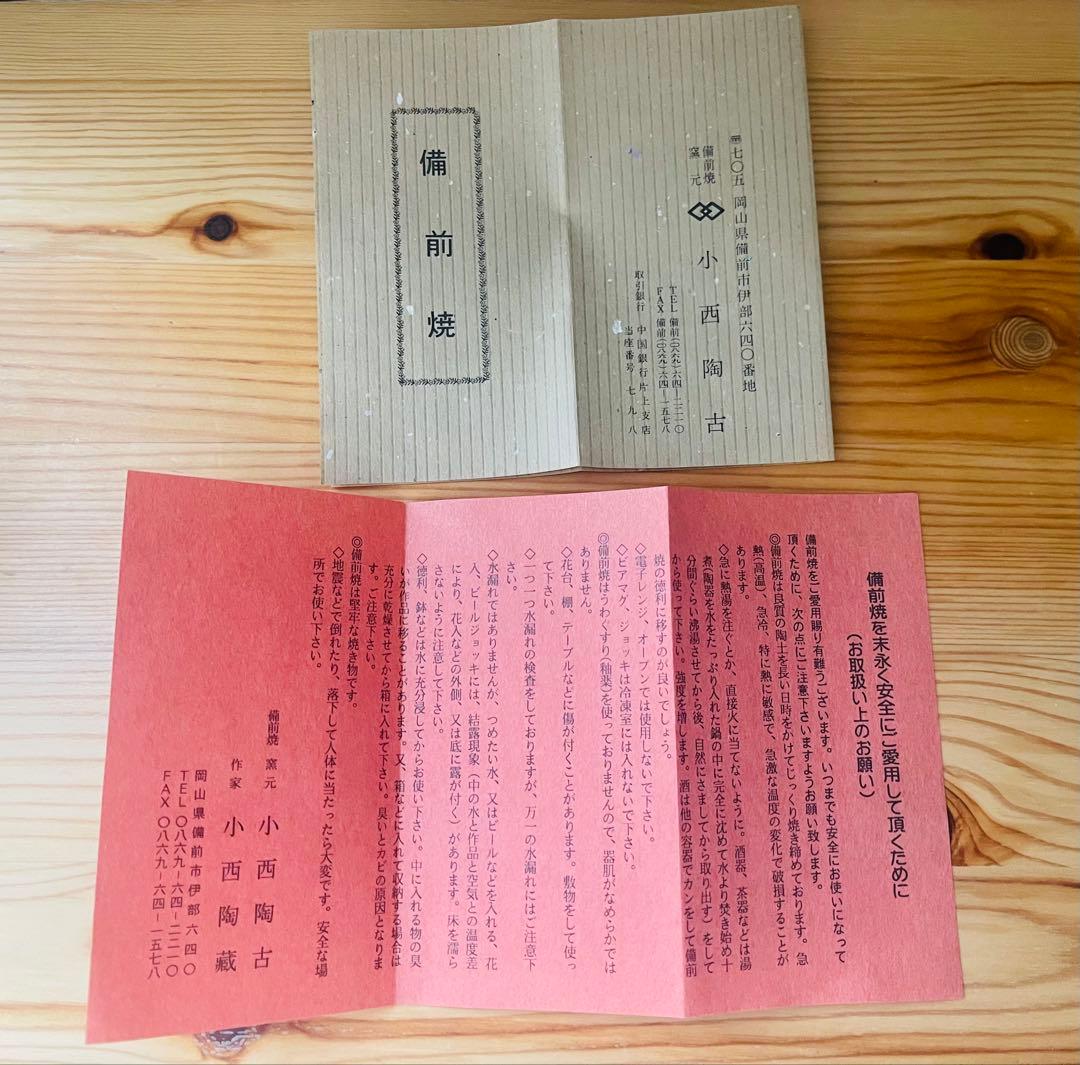 備前焼
〒七〇五 岡山県備前市伊部六四〇番地
備前焼
窯元
小西陶古
TEL 備前(〇八六九)六四―二二一〇
FAX 備前(〇八六九)六四―一五七八
取引銀行 中国銀行片上支店
当座番号 七九八
備前焼を末永く安全にご愛用して頂くために
(お取扱い上のお願い)
備前焼をご愛用賜り有難うございます。いつまでも安全にお使いになって
頂くために、次の点にご注意下さいますようお願い致します。
◎備前焼は良質の陶土を長い日時をかけてじっくり焼き締めております。急
熱(高温)、急冷、特に熱に敏感で、急激な温度の変化で破損することが
あります。
◇急に熱湯を注ぐとか、直接火に当てないように。酒器、茶器などは湯
煮(陶器を水をたっぷり入れた鍋の中に完全に沈めて水より焚き始め十
分間ぐらい沸湯させてから後、自然にさましてから取り出す)をして
から使って下さい。強度を増します。酒は他の容器でカンをして備前
焼の徳利に移すのが良いでしょう。
◇電子レンジ、オーブンでは使用しないで下さい。
◇ビアマグ、ジョッキは冷凍室には入れないで下さい。
◎備前焼はうわぐすり(釉薬)を使っておりませんので、器肌がなめらかでは
ありません。
◇花台、棚、テーブルなどに傷が付くことがあります。敷物をして使っ
て下さい。
◇一つ一つ水漏れの検査をしておりますが、万一の水漏れにはご注意下
さい。
◇水漏れではありませんが、つめたい水、又はビールなどを入れる、花
入、ビールジョッキには、結露現象(中の水と作品と空気との温度差
により、花入などの外側、又は底に露が付く)があります。床を濡ら
さないように注意して下さい。
◇徳利、鉢などは水に充分浸してからお使い下さい。中に入れる物の臭
いが作品に移ることがあります。又、箱などに入れて収納する場合は
充分に乾燥させてから箱に入れて下さい。臭いとカビの原因となりま
す。ご注意下さい。
◎備前焼は堅牢な焼き物です。
◇地震などで倒れたり、落下して人体に当たったら大変です。安全な場
所でお使い下さい。
備前焼 窯元 小西陶古
作家 小西陶藏
岡山県備前市伊部六四〇
TEL〇八六九―六四―二二一〇
FAX〇八六九―六四―一五七八